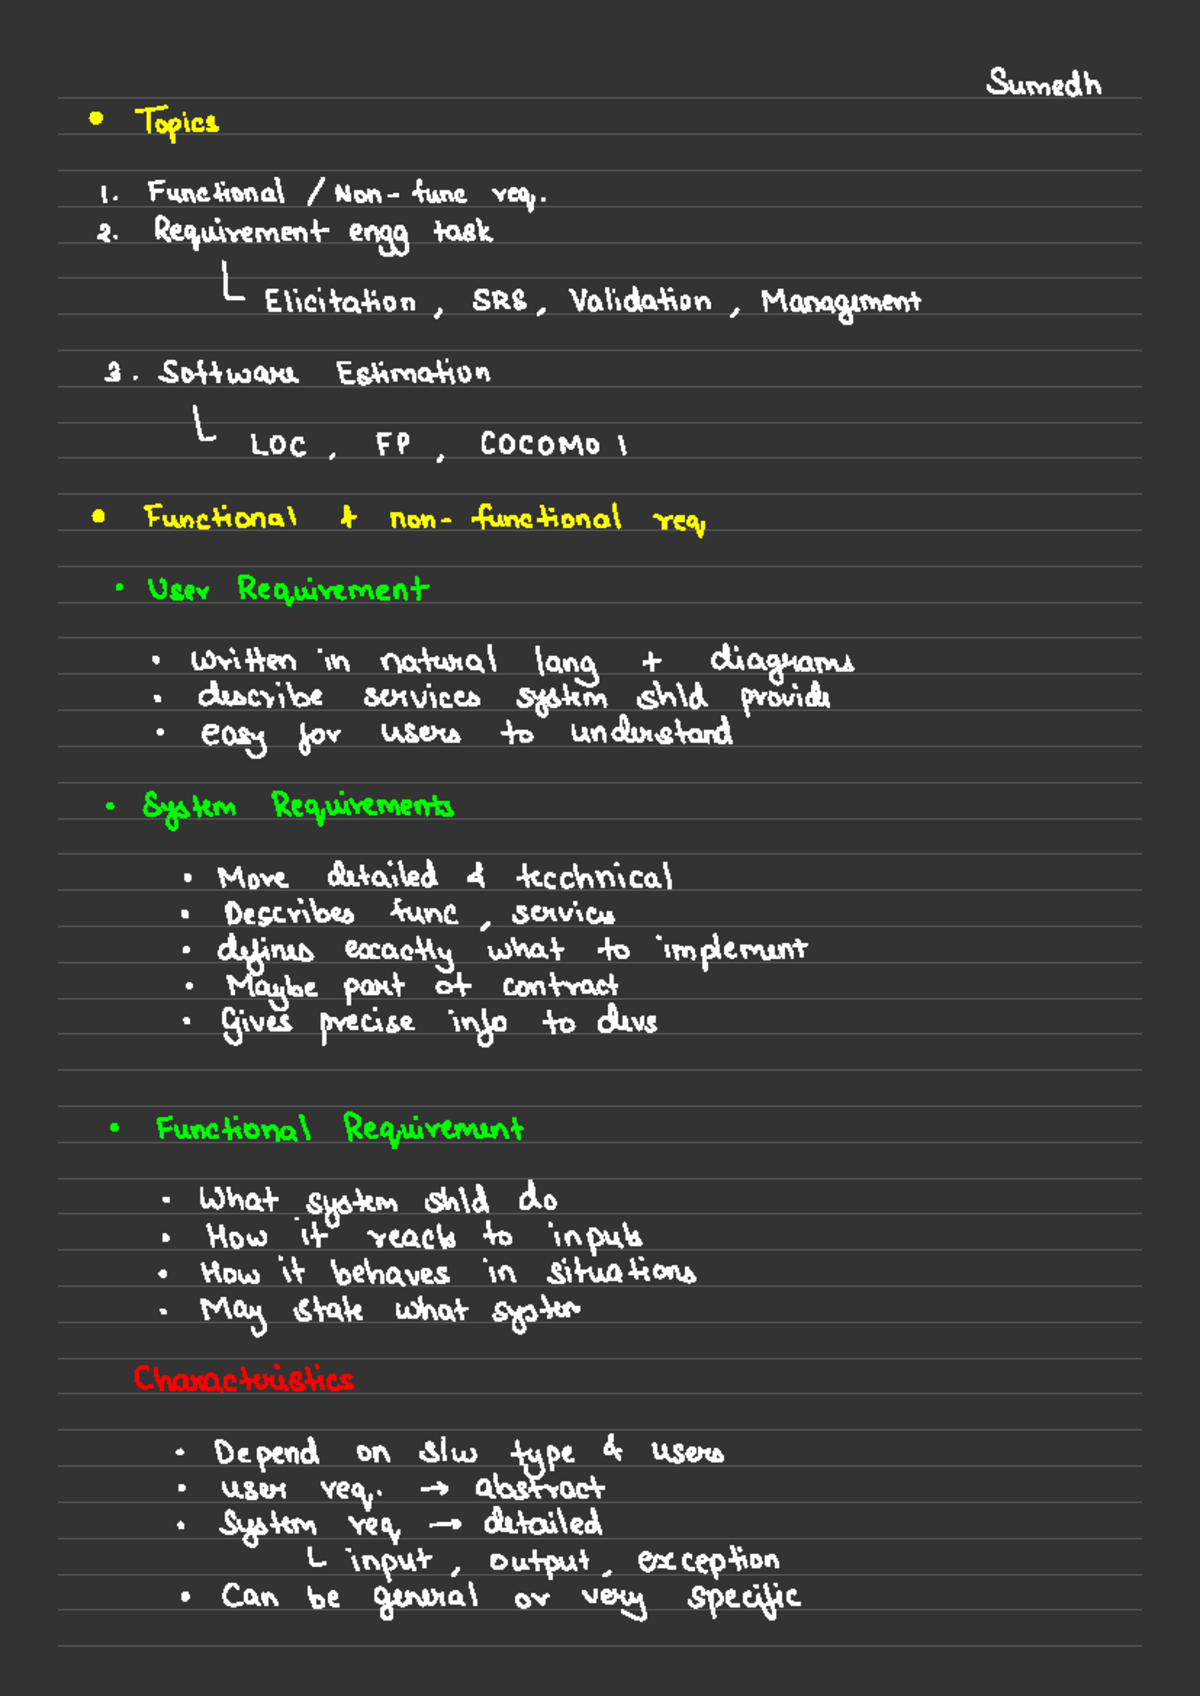 Sumedh
• Topics
1. Functional / Non-func req.
2. Requirement engg task
Elicitation, SRS, Validation, Management
3. Software Estimation
LOC, FP, COCOMO 1
• Functional & non-functional req
• User Requirement
• written in natural lang + diagrams
• describe services system shld provide
• easy for users to understand
• System Requirements
• More detailed & tecchnical
• Describes func, services
• defines exactly what to implement
• Maybe part of contract
• Gives precise info to devs
• Functional Requirement
• What system shld do
• How it reacts to inputs
• How it behaves in situations
• May state what system
Characteristics
• Depend on s/w type & users
• user req. → abstract
• System req → detailed
input, output, exception
• Can be general or very specific